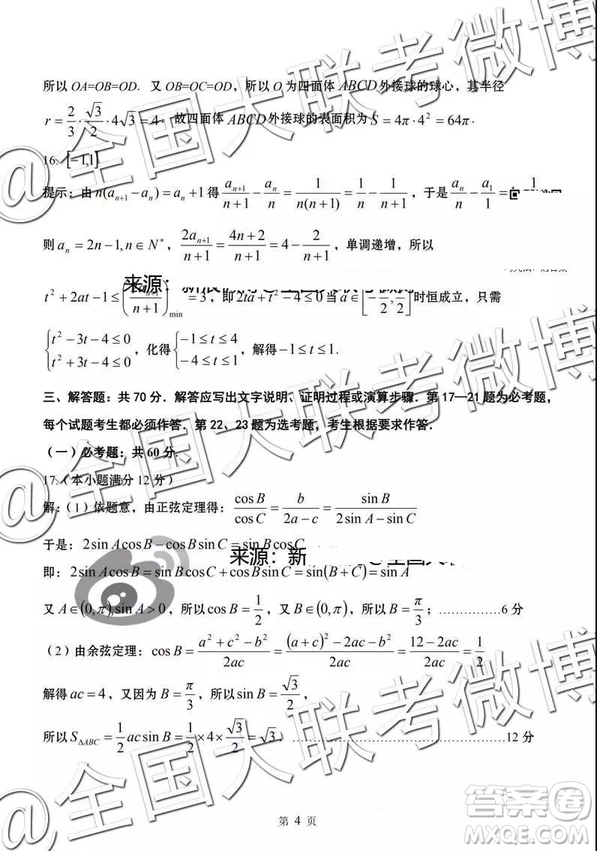 所以 OA=OB=OD. 又 OB=OC=OD，所以 O 为四面体 ABCD 外接球的球心，其半径
r = 2/3 · √3/2 · 4√3 = 4. 故四面体 ABCD 外接球的表面积为 S = 4π · 4² = 64π.
16. [-1,1]
提示：由 n(aₙ₊₁ - aₙ) = aₙ + 1 得 aₙ₊₁/(n+1) - aₙ/n = 1/(n(n+1)) = 1/n - 1/(n+1)，于是 aₙ/n - a₁/1 =
则 aₙ = 2n-1, n∈N*，2aₙ₊₁/(n+1) = (4n+2)/(n+1) = 4 - 2/(n+1)，单调递增，所以
来源：新
t² + 2at - 1 ≤ (2aₙ₊₁/(n+1))min = 3，即 2ta + t² - 4 ≤ 0 当 a∈[-3/2, 3/2] 时恒成立，只需
{t² - 3t - 4 ≤ 0, t² + 3t - 4 ≤ 0，化得 {-1 ≤ t ≤ 4, -4 ≤ t ≤ 1，解得 -1 ≤ t ≤ 1.
三、解答题：共 70 分．解答应写出文字说明、证明过程或演算步骤．第 17—21 题为必考题，
每个试题考生都必须作答．第 22、23 题为选考题，考生根据要求作答．
（一）必考题：共 60 分．
17.（本小题满分 12 分）
解：（1）依题意，由正弦定理得：cosB/cosC = b/(2a-c) = sinB/(2sinA-sinC)
于是：2sinAcosB - cosBsinC = sinBcosC
来源：新 全国大
即：2sinAcosB = sinBcosC + cosBsinC = sin(B+C) = sinA
又 A∈(0,π), sinA > 0，所以 cosB = 1/2，又 B∈(0,π)，所以 B = π/3；……………6 分
（2）由余弦定理：cosB = (a²+c²-b²)/2ac = ((a+c)²-2ac-b²)/2ac = (12-2ac)/2ac = 1/2
解得 ac = 4，又因为 B = π/3，所以 sinB = √3/2，
所以 S△ABC = 1/2 acsinB = 1/2×4×√3/2 = √3. ……………………………12 分
第 4 页
@全国大联考微博
@全国大联考微博
@全国大联考微博
答案圈
MXQE.COM